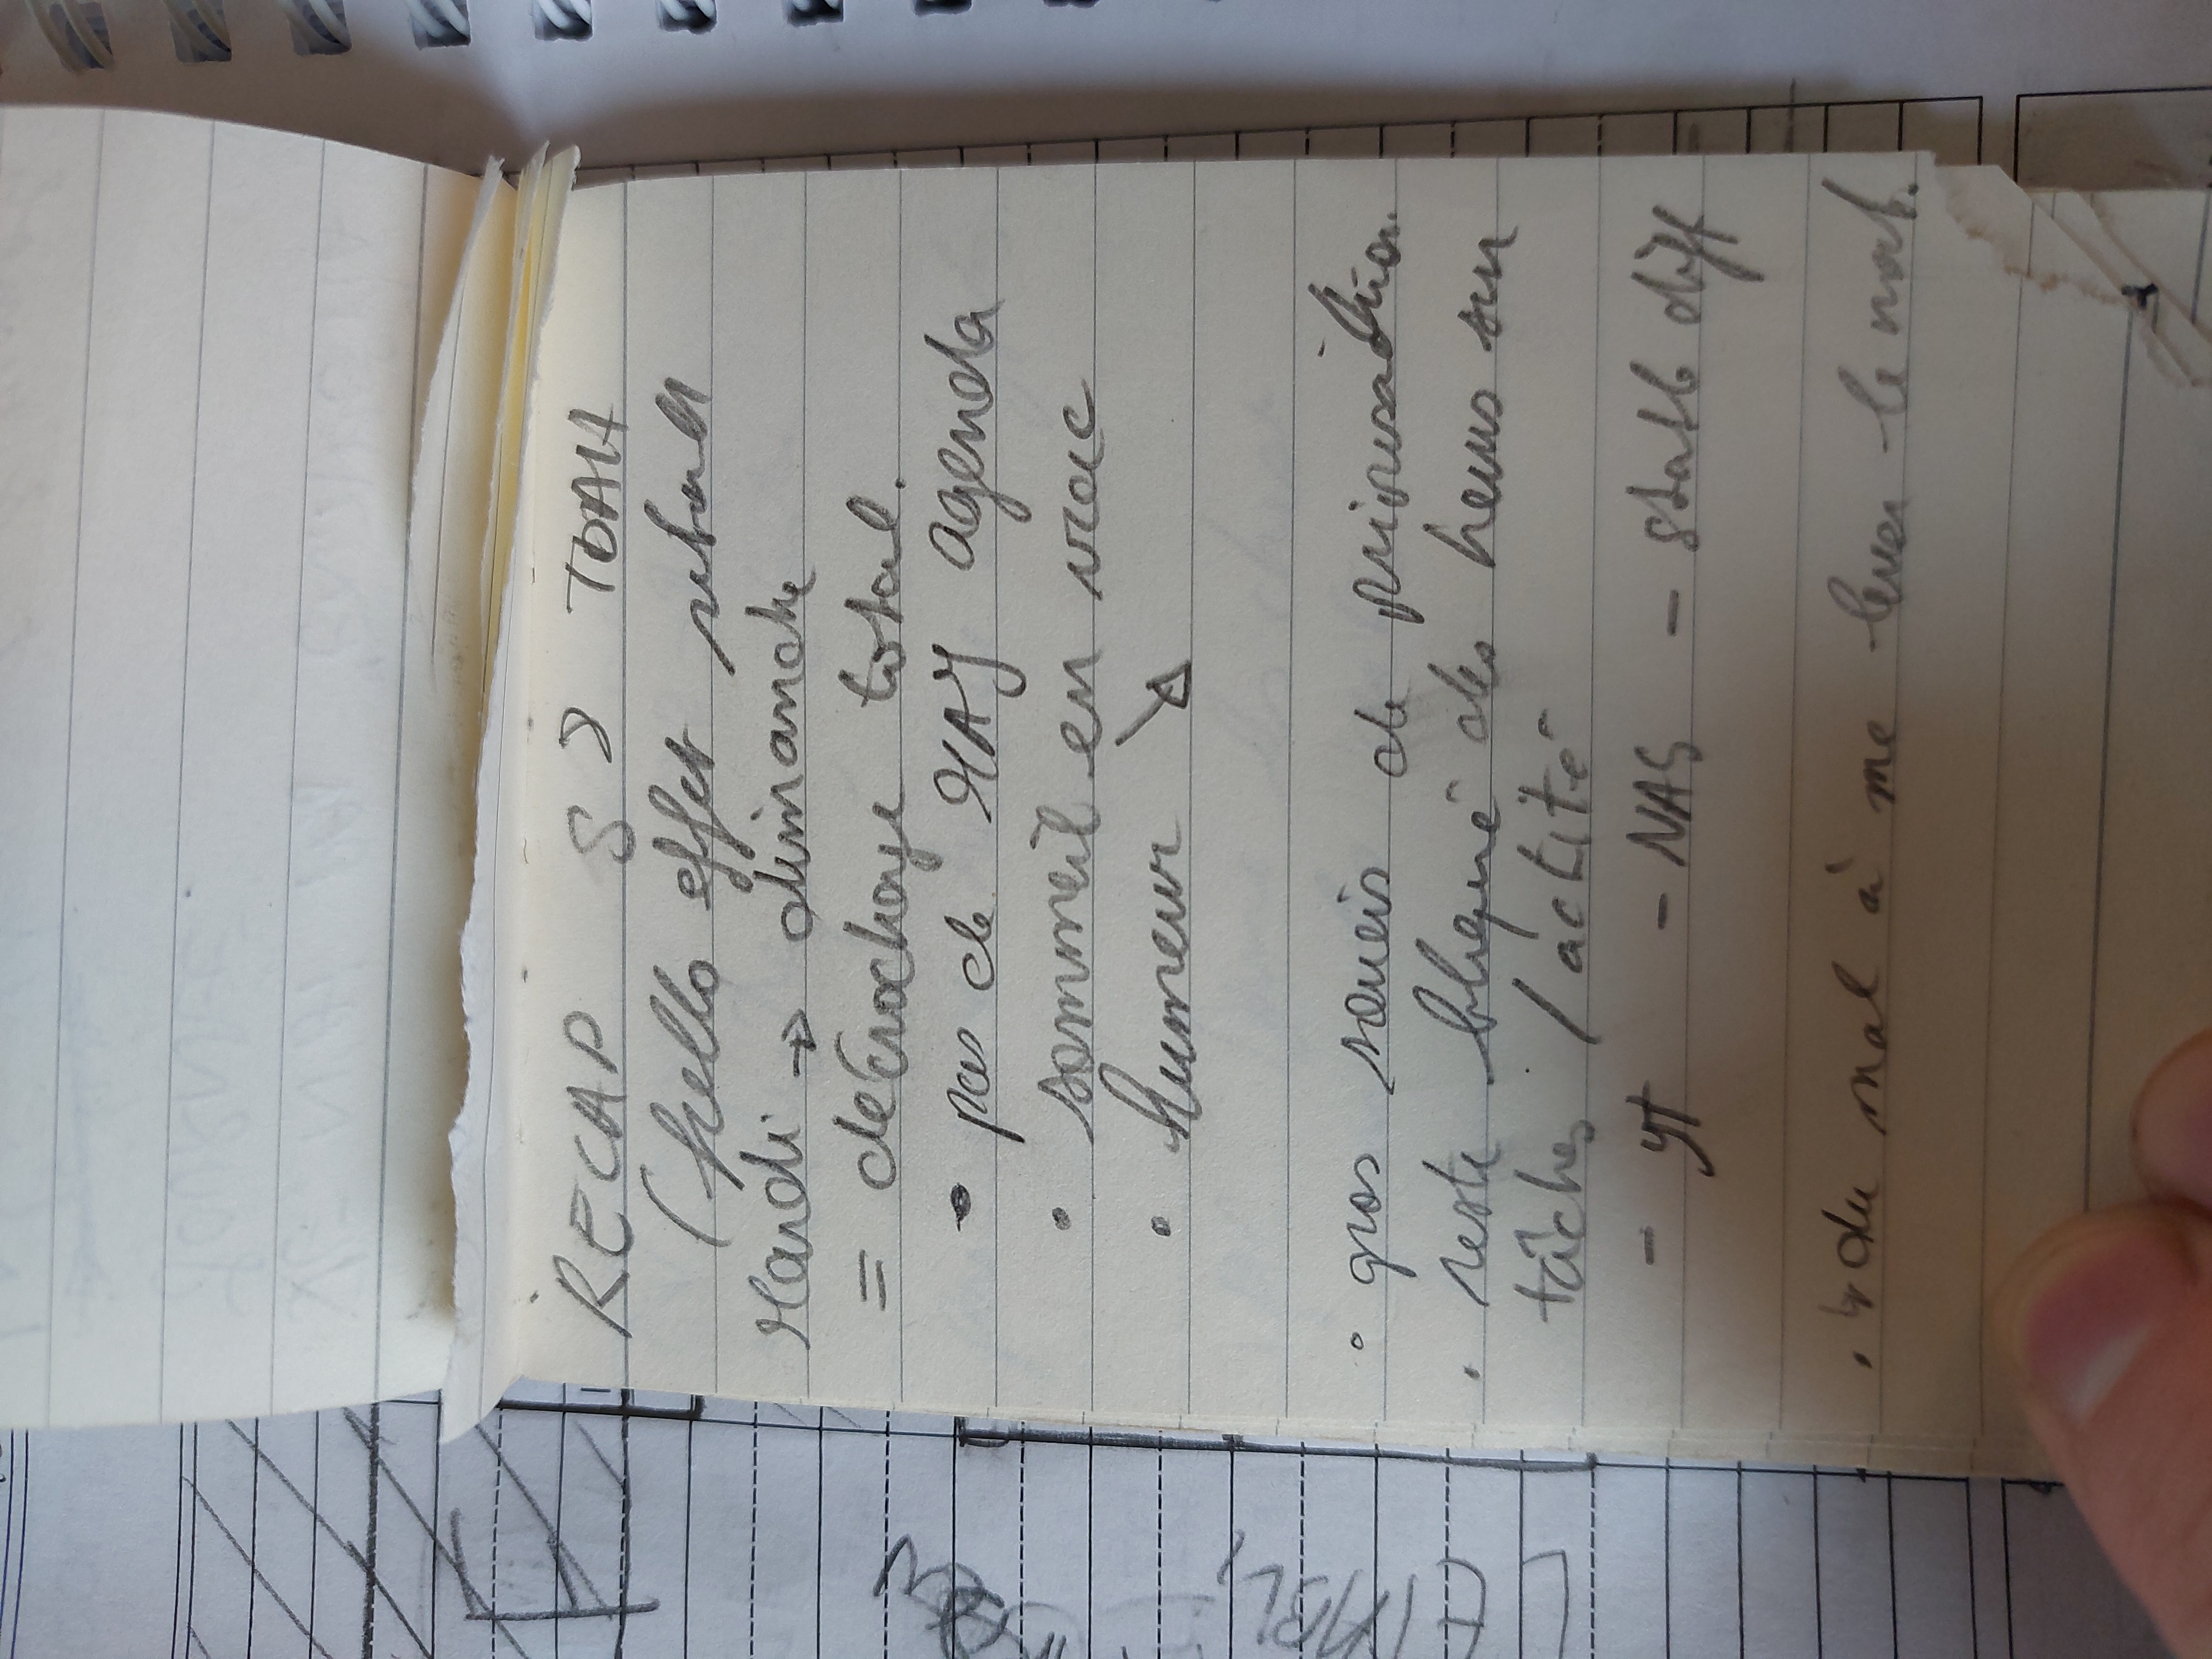 RECAP S2 TDAH
(hello effet rebond
Mardi → dimanche
= décrochage total.
• pas de MAJ agenda
• sommeil en vrac
• humeur ↘
• gros soucis de priorisation.
• reste bloqué des heures sur
tâches / activité
- YT - NAS - stable diff
• du mal à me lever le mat.